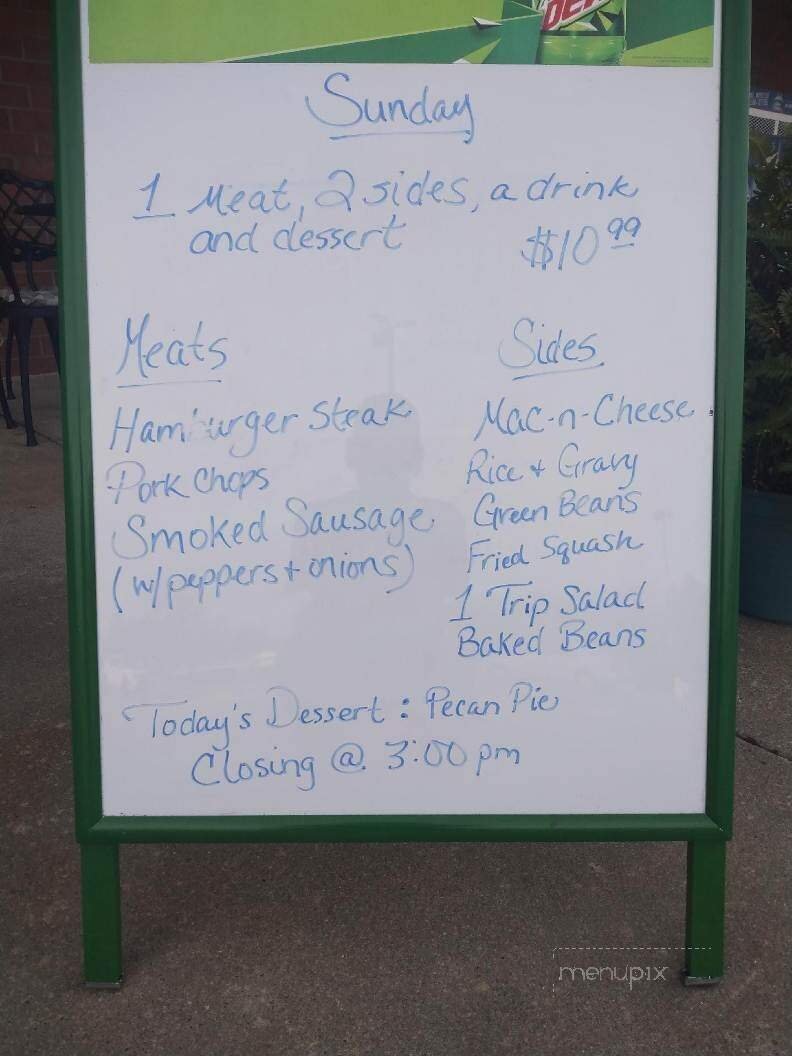 DEW
Sunday
1 Meat, 2 sides, a drink
and dessert $10 99
Meats
Hamburger Steak
Pork Chops
Smoked Sausage
(w/peppers + onions)
Sides
Mac-n-Cheese
Rice + Gravy
Green Beans
Fried Squash
1 Trip Salad
Baked Beans
Today's Dessert : Pecan Pie
Closing @ 3:00 pm
menupix